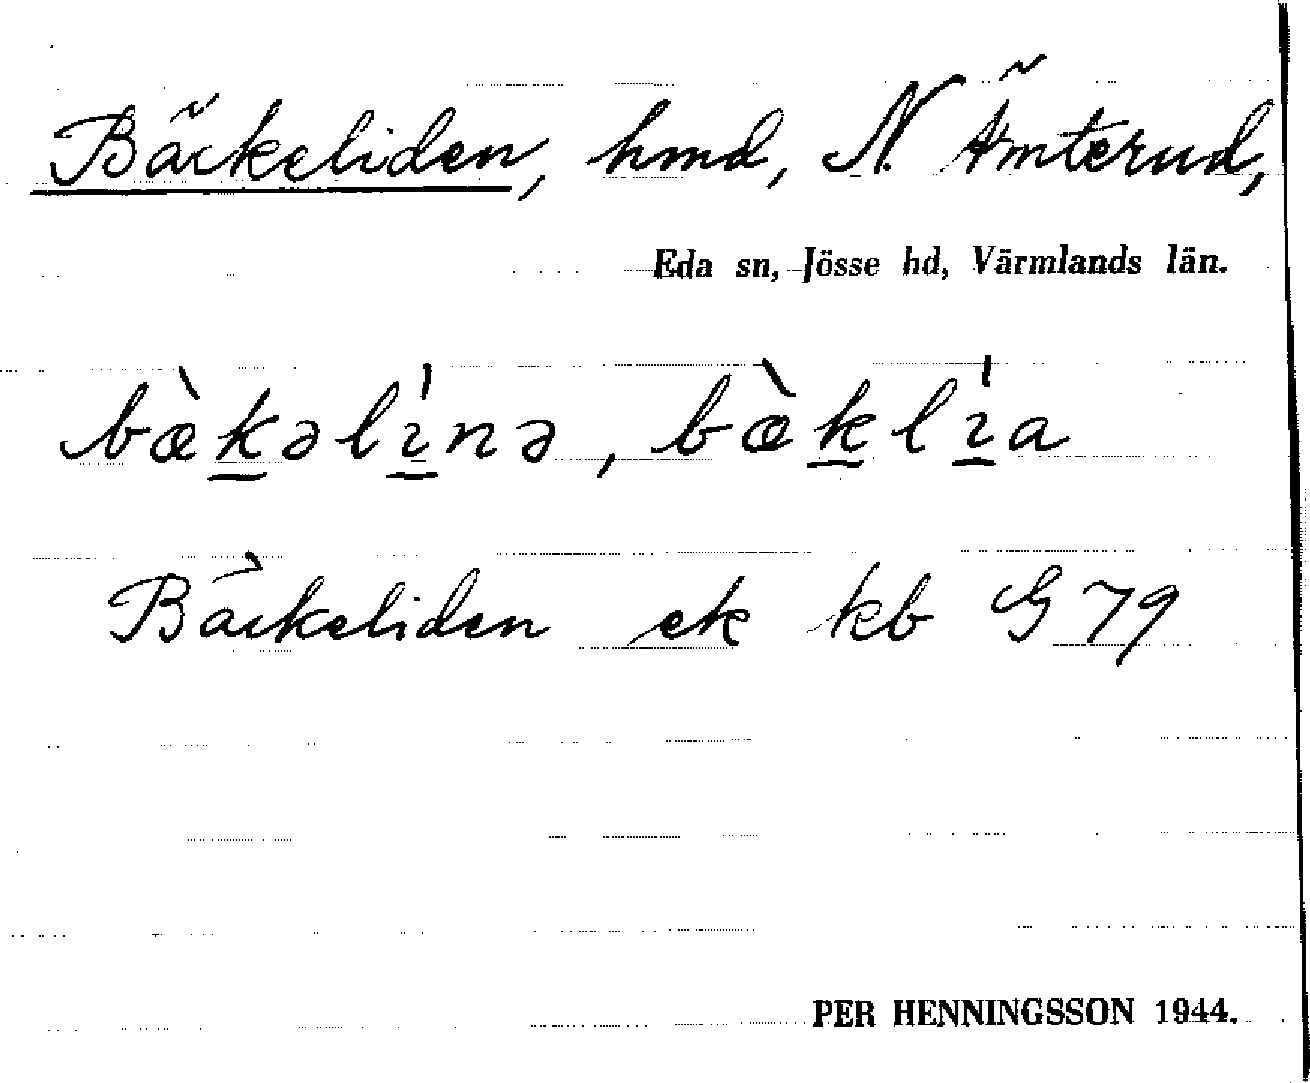 Bäckeliden, hmd, N. Ämterud,
Eda sn, Jösse hd, Värmlands län.
bæ̀k̲əlı̲̍nə, bæ̀k̲lı̲̍a
Bäckeliden ek kb G 79
PER HENNINGSSON 1944.